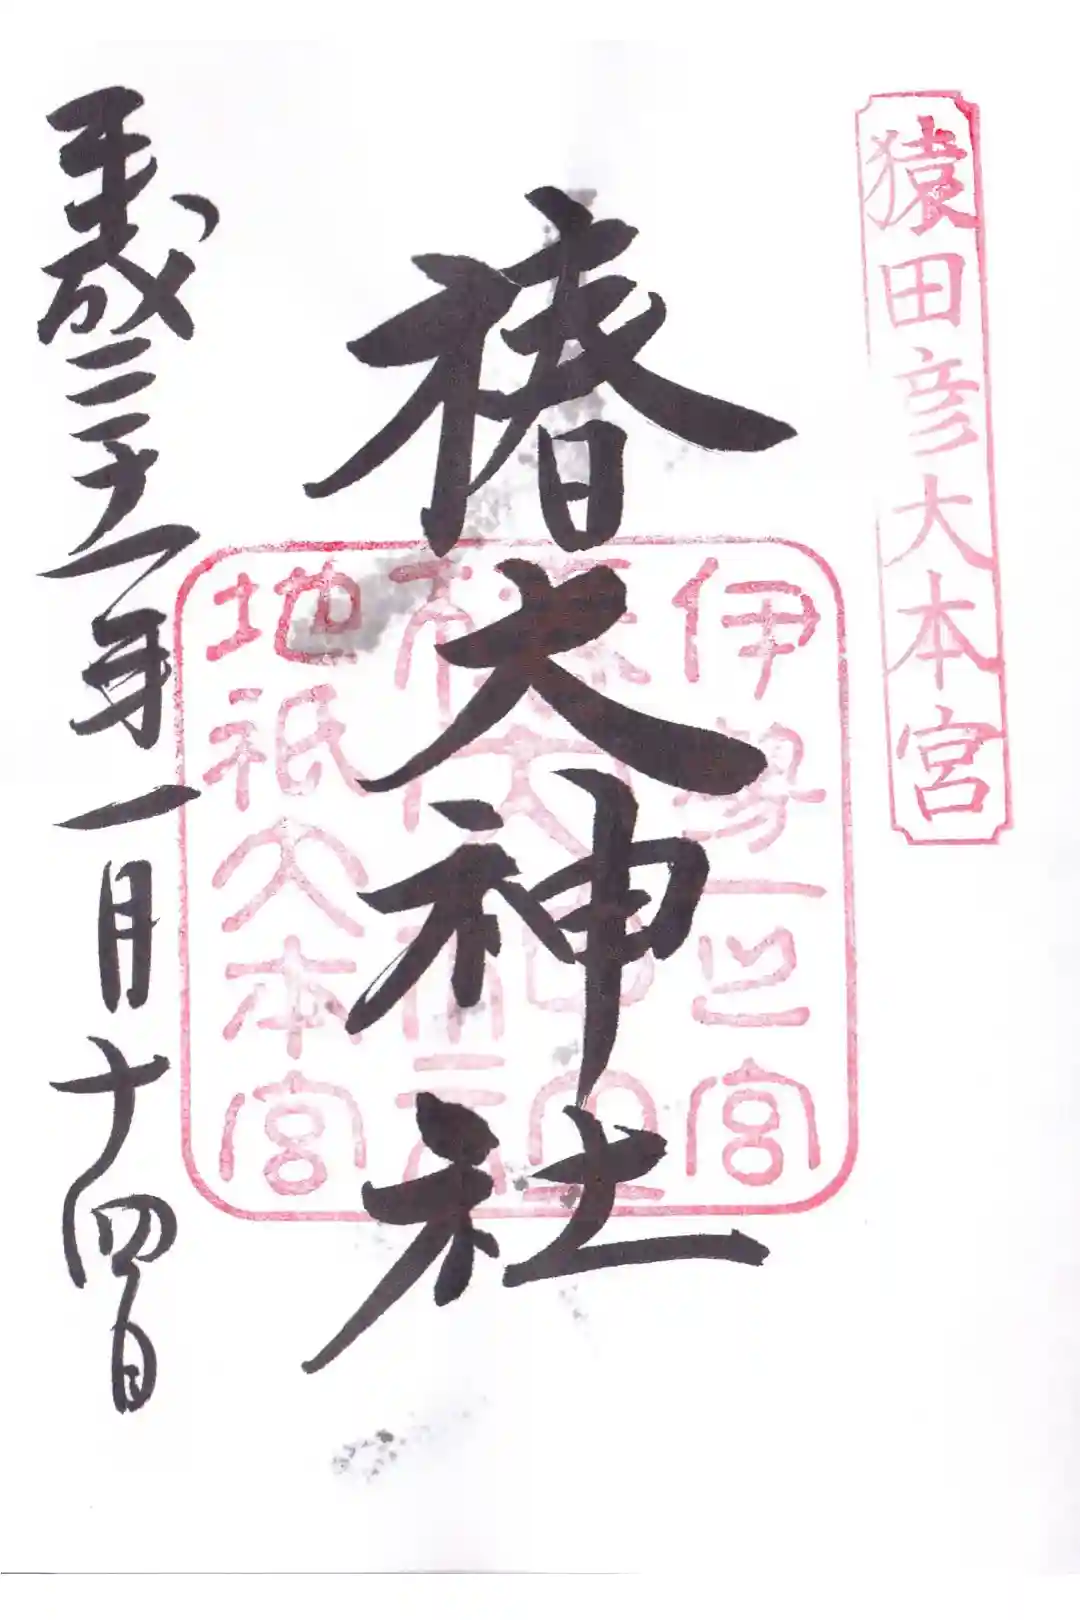 猿田彦大本宮
椿大神社
伊勢一之宮
椿大神社
地祇大本宮
平成三十一年一月十四日